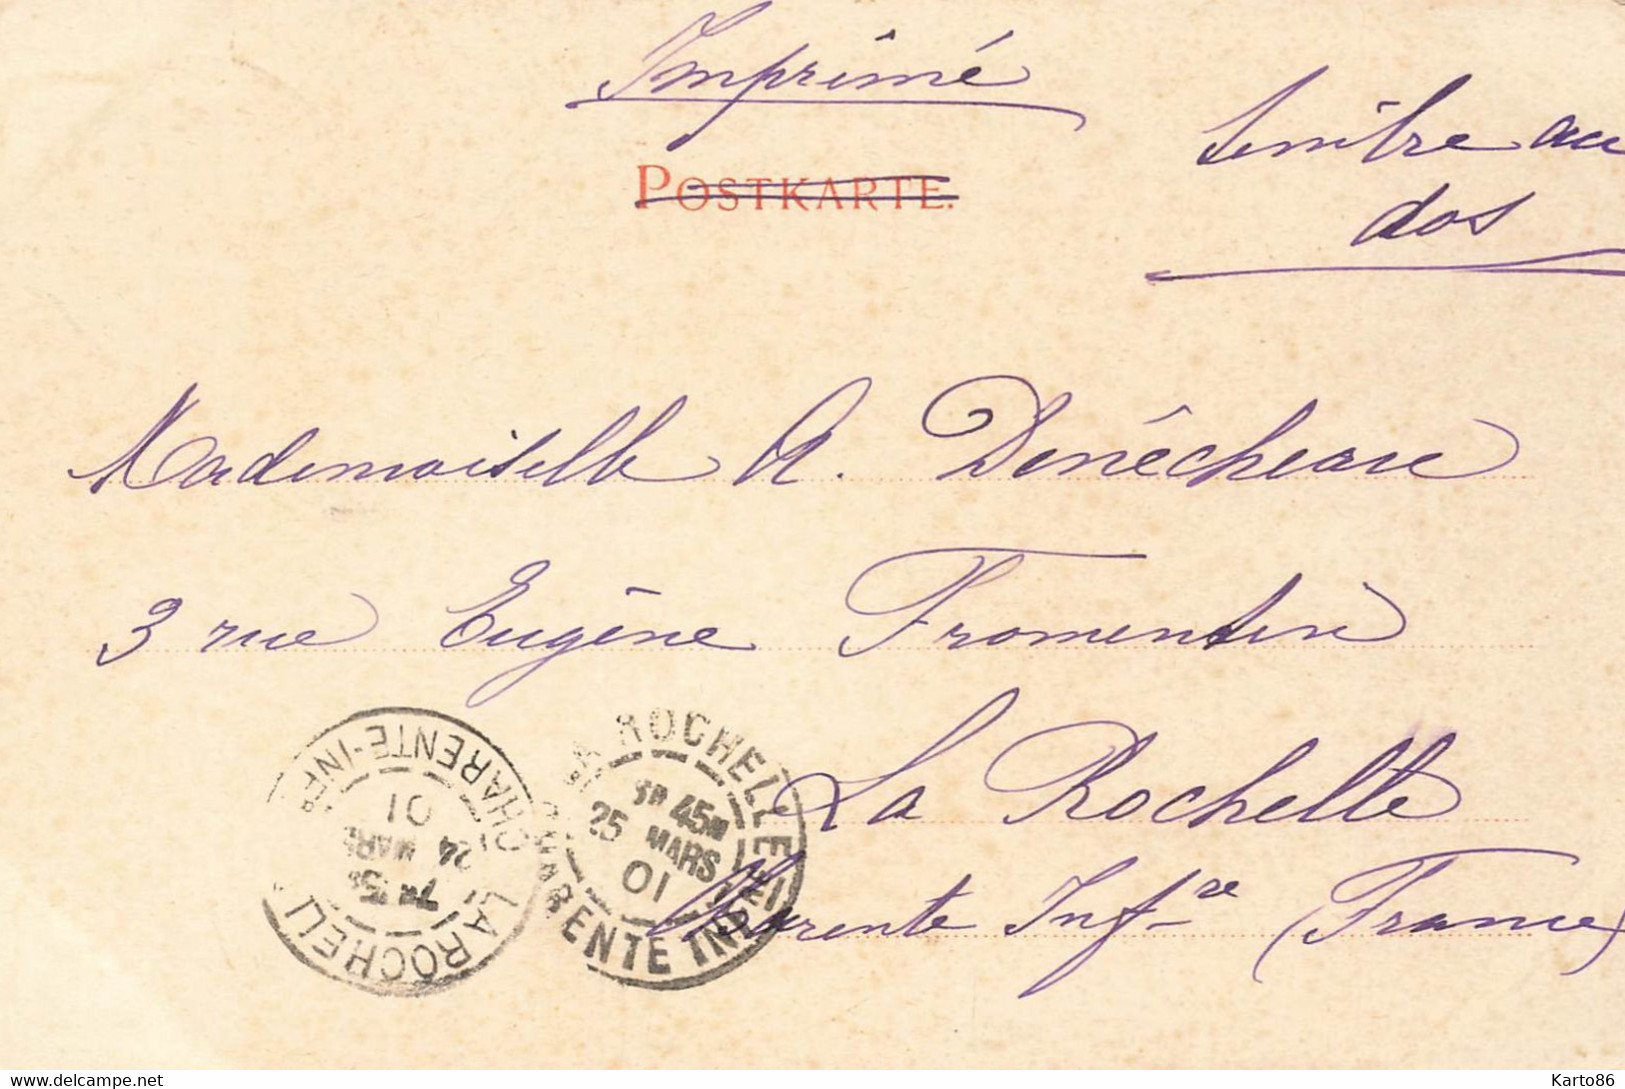 Imprimé
timbre au
dos
POSTKARTE.
Mademoiselle A. Denécheau
3 rue Eugène Fromentin
La Rochelle
Charente Infre (France)
LA ROCHELLE
CHARENTE-INFRE
7 15
24 MARS
01
LA ROCHELLE
45
25 MARS
01
CHARENTE INFRE
delcampe.net
Karto86